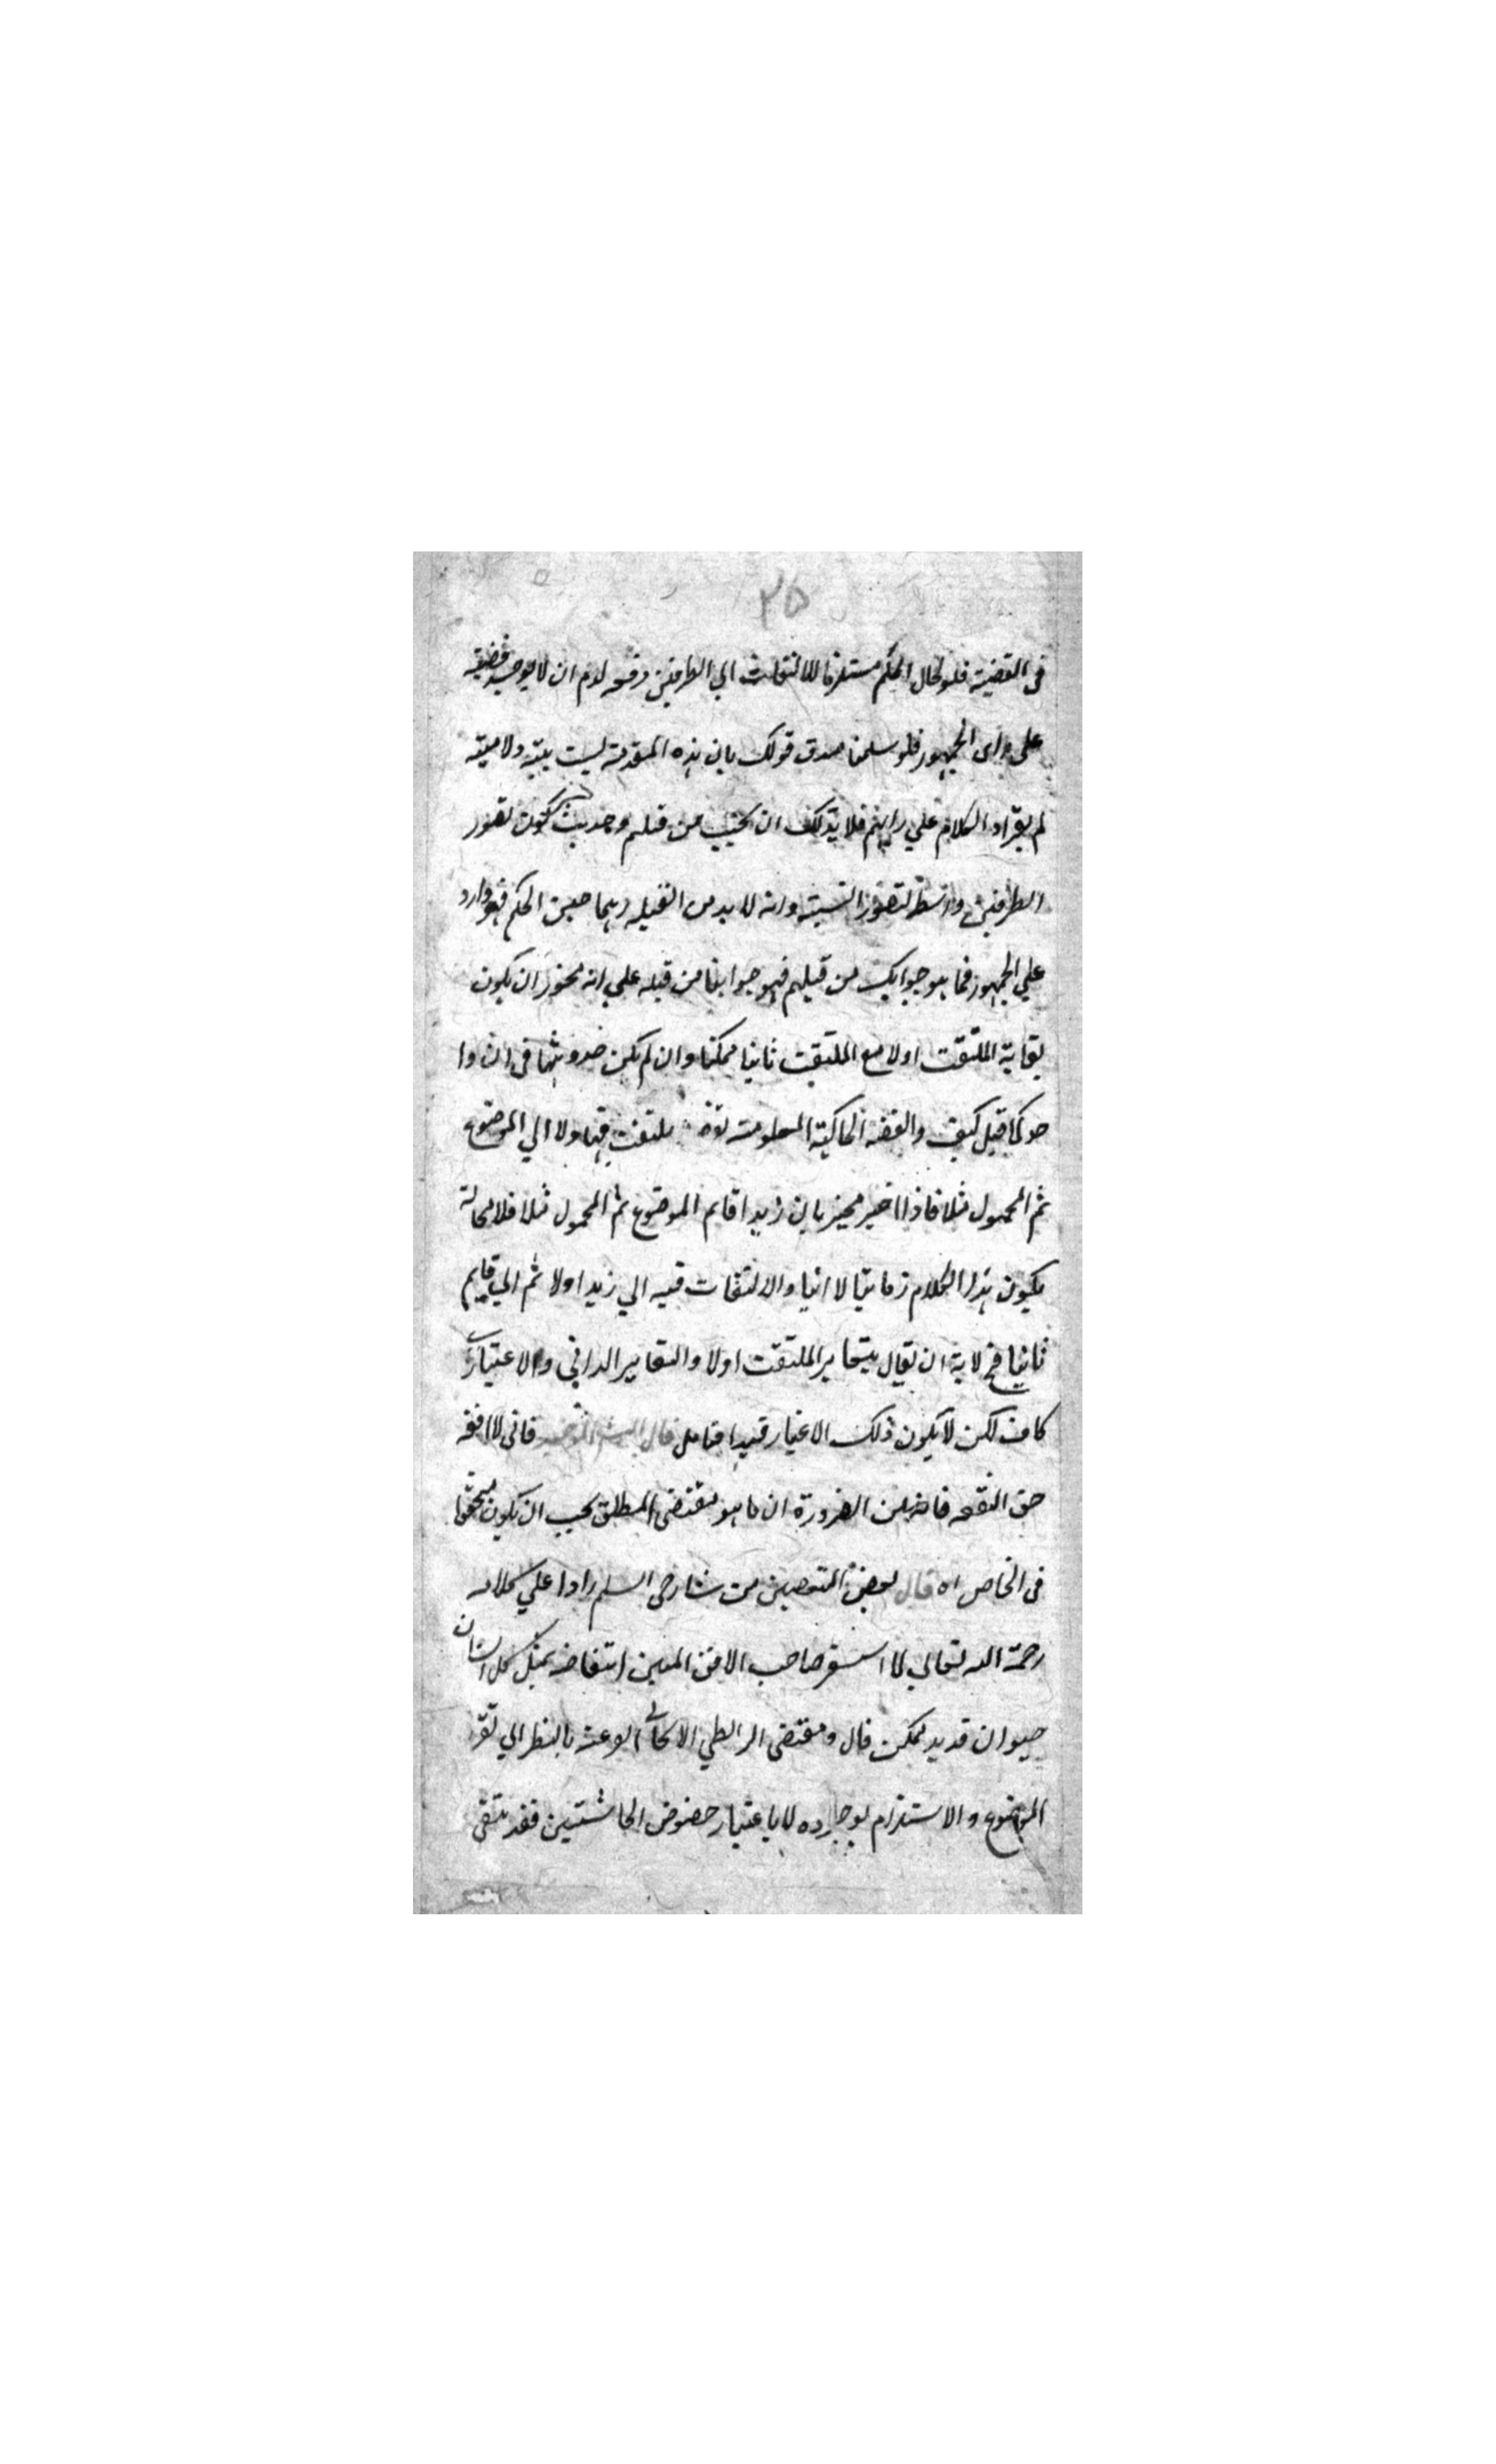 ٣٥
فى القضية فلو كان الحكم مستلزما للالتفات الي الطرفين دفعه لزم ان لا يوجد قضيه
على راى الجمهور فلو سلمنا صدق قولك بان هذه المقدمة ليست بينة ولا مبينه
لم يقراد الكلام علي رايهم فلا بد لك ان تجيب من قبلهم وحديث كون تصور
الطرفين واسطة لتصور النسبة وانه لا بد من التخيله بهما حين الحكم فهو وارد
علي الجمهور فما هو جوابك من قبلهم فهو جوابنا من قبله علي انه يجوز ان يكون
بقاية الملتفت اولا مع الملتفت ثانيا ممكنا وان لم يكن حدوثهما فى ان وا
حد كما قيل كيف والقضه الحاكية المعلومة يلتفت فيها ولا الي الموضوع
ثم المحمول مثلا فاذا اخبر مخبر بان زيدا قايم الموضوع ثم المحمول مثلا فلا محالة
يكون هذا الكلام زمانيا لا انيا والالتفات فيه الي زيد اولا ثم الي قايم
ثانيا فح لا بد ان يقال يتغاير الملتفت اولا والتغاير الذاتي والاعتبارى
كاف لكن لا يكون ذلك الاعتبار قيدا فتامل قال فانى لا افقه
حق التفقه فاضلين الضرورة ان ما هو مقتضى المطلق يجب ان يكون متحققا
فى الخاص اه قال بعض المتعصبين من شارحى السلم رادا علي كلامه
رحمة الله تعالي لما استقر صاحب الافق المبين انتقاضه بمثل كل انسان
حيوان قديد يمكن قال ومقتضى الرابطي الايجابى الوعة بالنظر الي تقرر
الموضوع والاستلزام لوجوده لا باعتبار خصوص الحاشيتين فقد يتقى